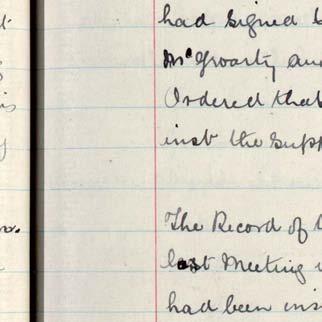 had signed
McGroarty and
Ordered that
inst the Supp
The Record of
last Meeting
had been ins